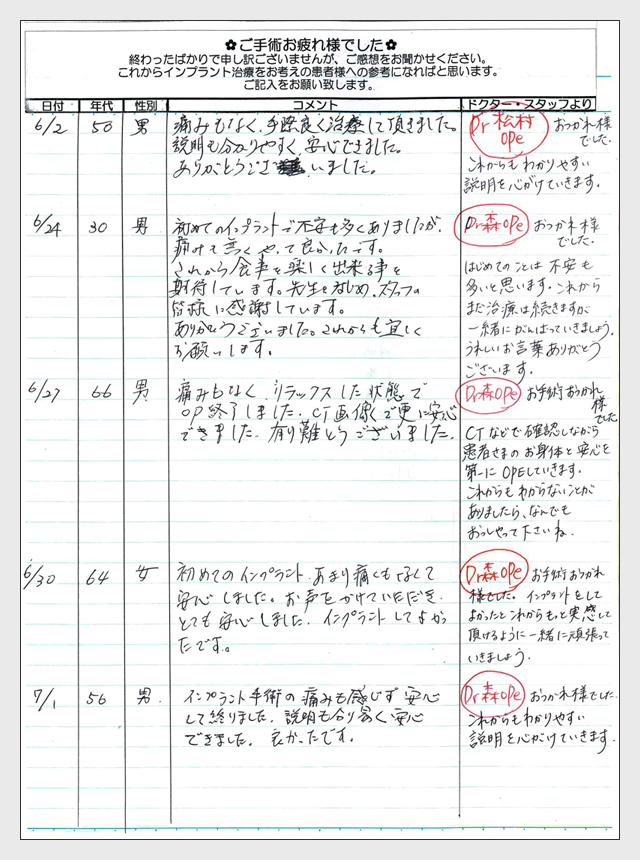 ✿ご手術お疲れ様でした✿
終わったばかりで申し訳ございませんが、ご感想をお聞かせください。
これからインプラント治療をお考えの患者様への参考になればと思います。
ご記入をお願い致します。
日付 年代 性別 コメント ドクター・スタッフより
6/2 50 男
痛みもなく、手際良く治療して頂きました。
説明も分かりやすく、安心できました。
ありがとうござ いました。
Dr 松村 OPe おつかれ様
でした。
これからもわかりやすい
説明を心がけていきます。
6/24 30 男
初めてのインプラントで不安も多くありましたが、
痛みも無くやって良かったです。
これから食事を楽しく出来る事を
期待しています。先生をはじめ、スタッフの
皆様に感謝しています。
ありがとうございました。これからも宜しく
お願いします。
Dr森OPe おつかれ様
でした。
はじめてのことは不安も
多いと思います。これから
まだ治療は続きますが
一緒にがんばっていきましょう。
うれしいお言葉ありがとう
ございます。
6/27 66 男
痛みもなく、リラックスした状態で
OP終了しました。CT画像で更に安心
できました。有り難とうございました。
Dr森OPe お手術おつかれ
様でした
CTなどで確認しながら
患者さまのお身体と安心を
第一にOPEしていきます。
これからもわからないことが
ありましたら、なんでも
おっしゃって下さいね。
6/30 64 女
初めてのインプラント、あまり痛くもなくて
安心しました。お声をかけていただき、
とても安心しました。インプラントしてよかっ
たです。
Dr森OPe お手術おつかれ
様でした。インプラントをして
よかったとこれからもっと実感して
頂けるように一緒に頑張って
いきましょう。
7/1 56 男
インプラント手術の痛みも感じず安心
して終りました。説明も分り易く安心
できました。良かったです。
Dr森OPe おつかれ様でした。
これからもわかりやすい
説明を心がけていきます。